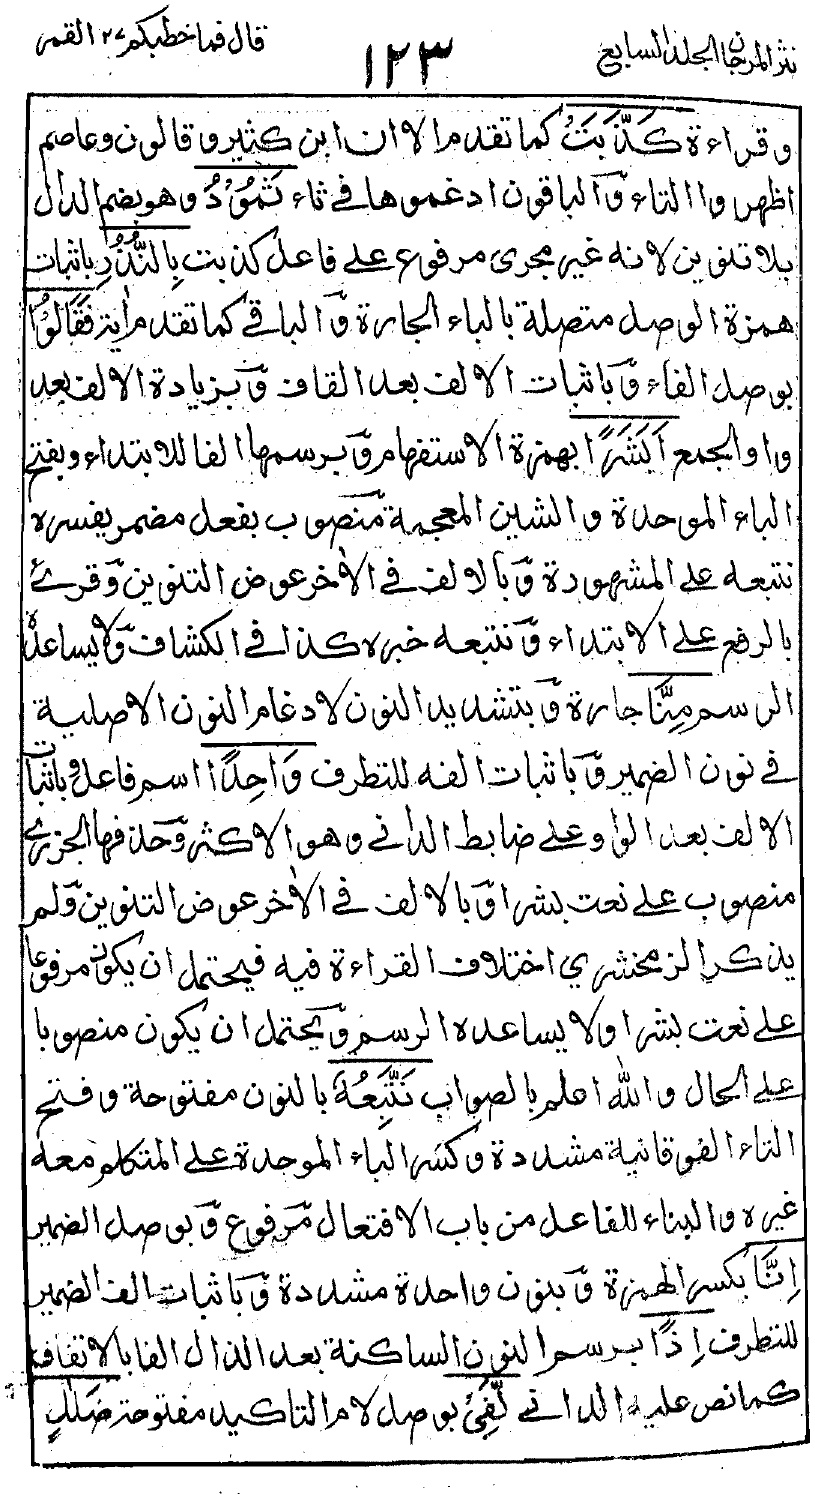 نثر المرجان الجلد السابع
١٢٣
قال فما خطبكم ٢٧ القمر
وقراءة كَذَّبَتْ كما تقدم الا ان ابن كثير و قالون وعاصم
اظهروا التاء وَّالباقون ادغموها في ثاء ثَمُوْدُ وهو بضم الدال
بلا تنوين لانه غير مجرى مرفوع على فاعل كذبت بِالنُّذُرِ باثبات
همزة الوصل متصلة بالباء الجارة وَّالباقي كما تقدم اٰية فَقَالُوْا
بوصل الفاء وَّباثبات الالف بعد القاف وَّبزيادة الالف بعد
واو الجمع اَبَشَرًا بهمزة الاستفهام وَّبرسمها الفا للابتداء وبفتح
الباء الموحدة والشين المعجمة مَّنصوب بفعل مضمر يفسره
نتبعه على المشهودة وَّبالالف في الاٰخر عوض التنوين وَّقرئ
بالرفع على الابتداء وَّنتبعه خبره كذا في الكشاف وَّلا يساعده
الرسم مِنَّا جارة وَّبتشديد النون لادغام النون الاصلية
في نون الضمير وَّباثبات الفه للتطرف وَاحِدًا اسم فاعل وباثبات
الالف بعد الواو على ضابط الداني وهو الاكثر وَّحذفها الجزري
منصوب على نعت بشرا وَّبالالف في الاٰخر عوض التنوين وَّلم
يذكر الزمخشري اختلاف القراءة فيه فيحتمل ان يكون مرفوعا
على نعت بشرا ولا يساعده الرسم وَّيحتمل ان يكون منصوبا
على الحال والله اعلم بالصواب نَتَّبِعُهٗ بالنون مفتوحة وفتح
التاء الفوقانية مشددة وكسر الباء الموحدة على المتكلم معه
غيره والبناء للفاعل من باب الافتعال مَّرفوع وَّبوصل الضمير
اِنَّا بكسر الهمزة وَّبنون واحدة مشددة وَّباثبات الف الضمير
للتطرف اِذًا برسم النون الساكنة بعد الذال الفا بالاتفاق
كما نص عليه الداني لَّفِيْ بوصل لام التاكيد مفتوحة ضَلٰلٍ